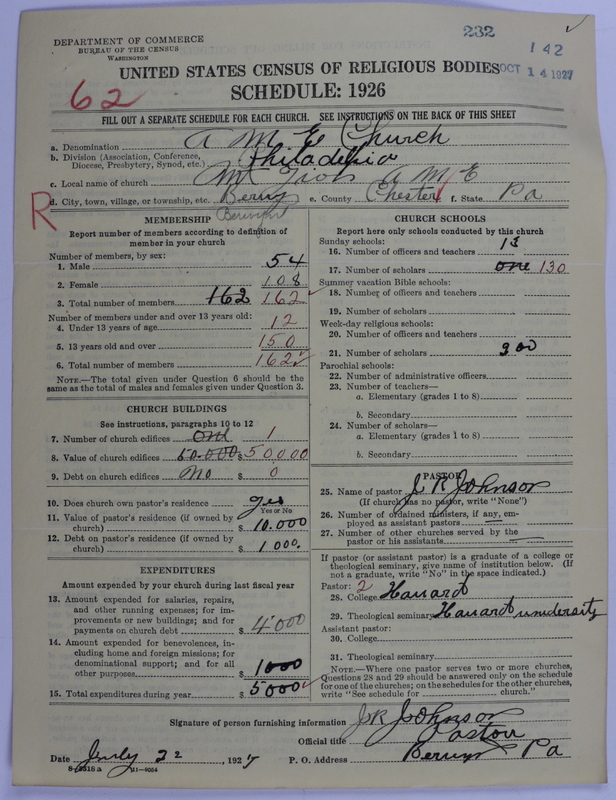 232
142
OCT 14 1927
DEPARTMENT OF COMMERCE
BUREAU OF THE CENSUS
WASHINGTON
UNITED STATES CENSUS OF RELIGIOUS BODIES
SCHEDULE: 1926
62
FILL OUT A SEPARATE SCHEDULE FOR EACH CHURCH. SEE INSTRUCTIONS ON THE BACK OF THIS SHEET
a. Denomination A M E Church
b. Division (Association, Conference, Diocese, Presbytery, Synod, etc.) Philadelhia
c. Local name of church Mt Zion A M E
d. City, town, village, or township, etc. Berwyn e. County Chester f. State Pa
R
MEMBERSHIP
Report number of members according to definition of
member in your church
Number of members, by sex:
1. Male 54
2. Female 108
3. Total number of members 162 162
Number of members under and over 13 years old:
4. Under 13 years of age 12
5. 13 years old and over 150
6. Total number of members 162
NOTE.—The total given under Question 6 should be the
same as the total of males and females given under Question 3.
CHURCH BUILDINGS
See instructions, paragraphs 10 to 12
7. Number of church edifices One 1
8. Value of church edifices 50.000 $ 50000
9. Debt on church edifices No $ 0
10. Does church own pastor's residence yes
Yes or No
11. Value of pastor's residence (if owned by
church) $ 10.000
12. Debt on pastor's residence (if owned by
church) $ 1000.
EXPENDITURES
Amount expended by your church during last fiscal year
13. Amount expended for salaries, repairs,
and other running expenses; for im-
provements or new buildings; and for
payments on church debt $ 4000
14. Amount expended for benevolences, in-
cluding home and foreign missions; for
denominational support; and for all
other purposes $ 1000
15. Total expenditures during year $ 5000
CHURCH SCHOOLS
Report here only schools conducted by this church
Sunday schools:
16. Number of officers and teachers 13
17. Number of scholars one 130
Summer vacation Bible schools:
18. Number of officers and teachers
19. Number of scholars
Week-day religious schools:
20. Number of officers and teachers
21. Number of scholars 300
Parochial schools:
22. Number of administrative officers
23. Number of teachers—
a. Elementary (grades 1 to 8)
b. Secondary
24. Number of scholars—
a. Elementary (grades 1 to 8)
b. Secondary
PASTOR
25. Name of pastor J R Johnson
(If church has no pastor, write "None")
26. Number of ordained ministers, if any, em-
ployed as assistant pastors —
27. Number of other churches served by the
pastor or his assistants —
If pastor (or assistant pastor) is a graduate of a college or
theological seminary, give name of institution below. (If
not a graduate, write "No" in the space indicated.)
Pastor: 2
28. College Howard
29. Theological seminary Howard university
Assistant pastor:
30. College
31. Theological seminary
NOTE.—Where one pastor serves two or more churches,
Questions 28 and 29 should be answered only on the schedule
for one of the churches; on the schedules for the other churches,
write "See schedule for church."
Signature of person furnishing information J R Johnson
Official title Pastor
Date July 22, 1927 P. O. Address Berwyn Pa
11—9054